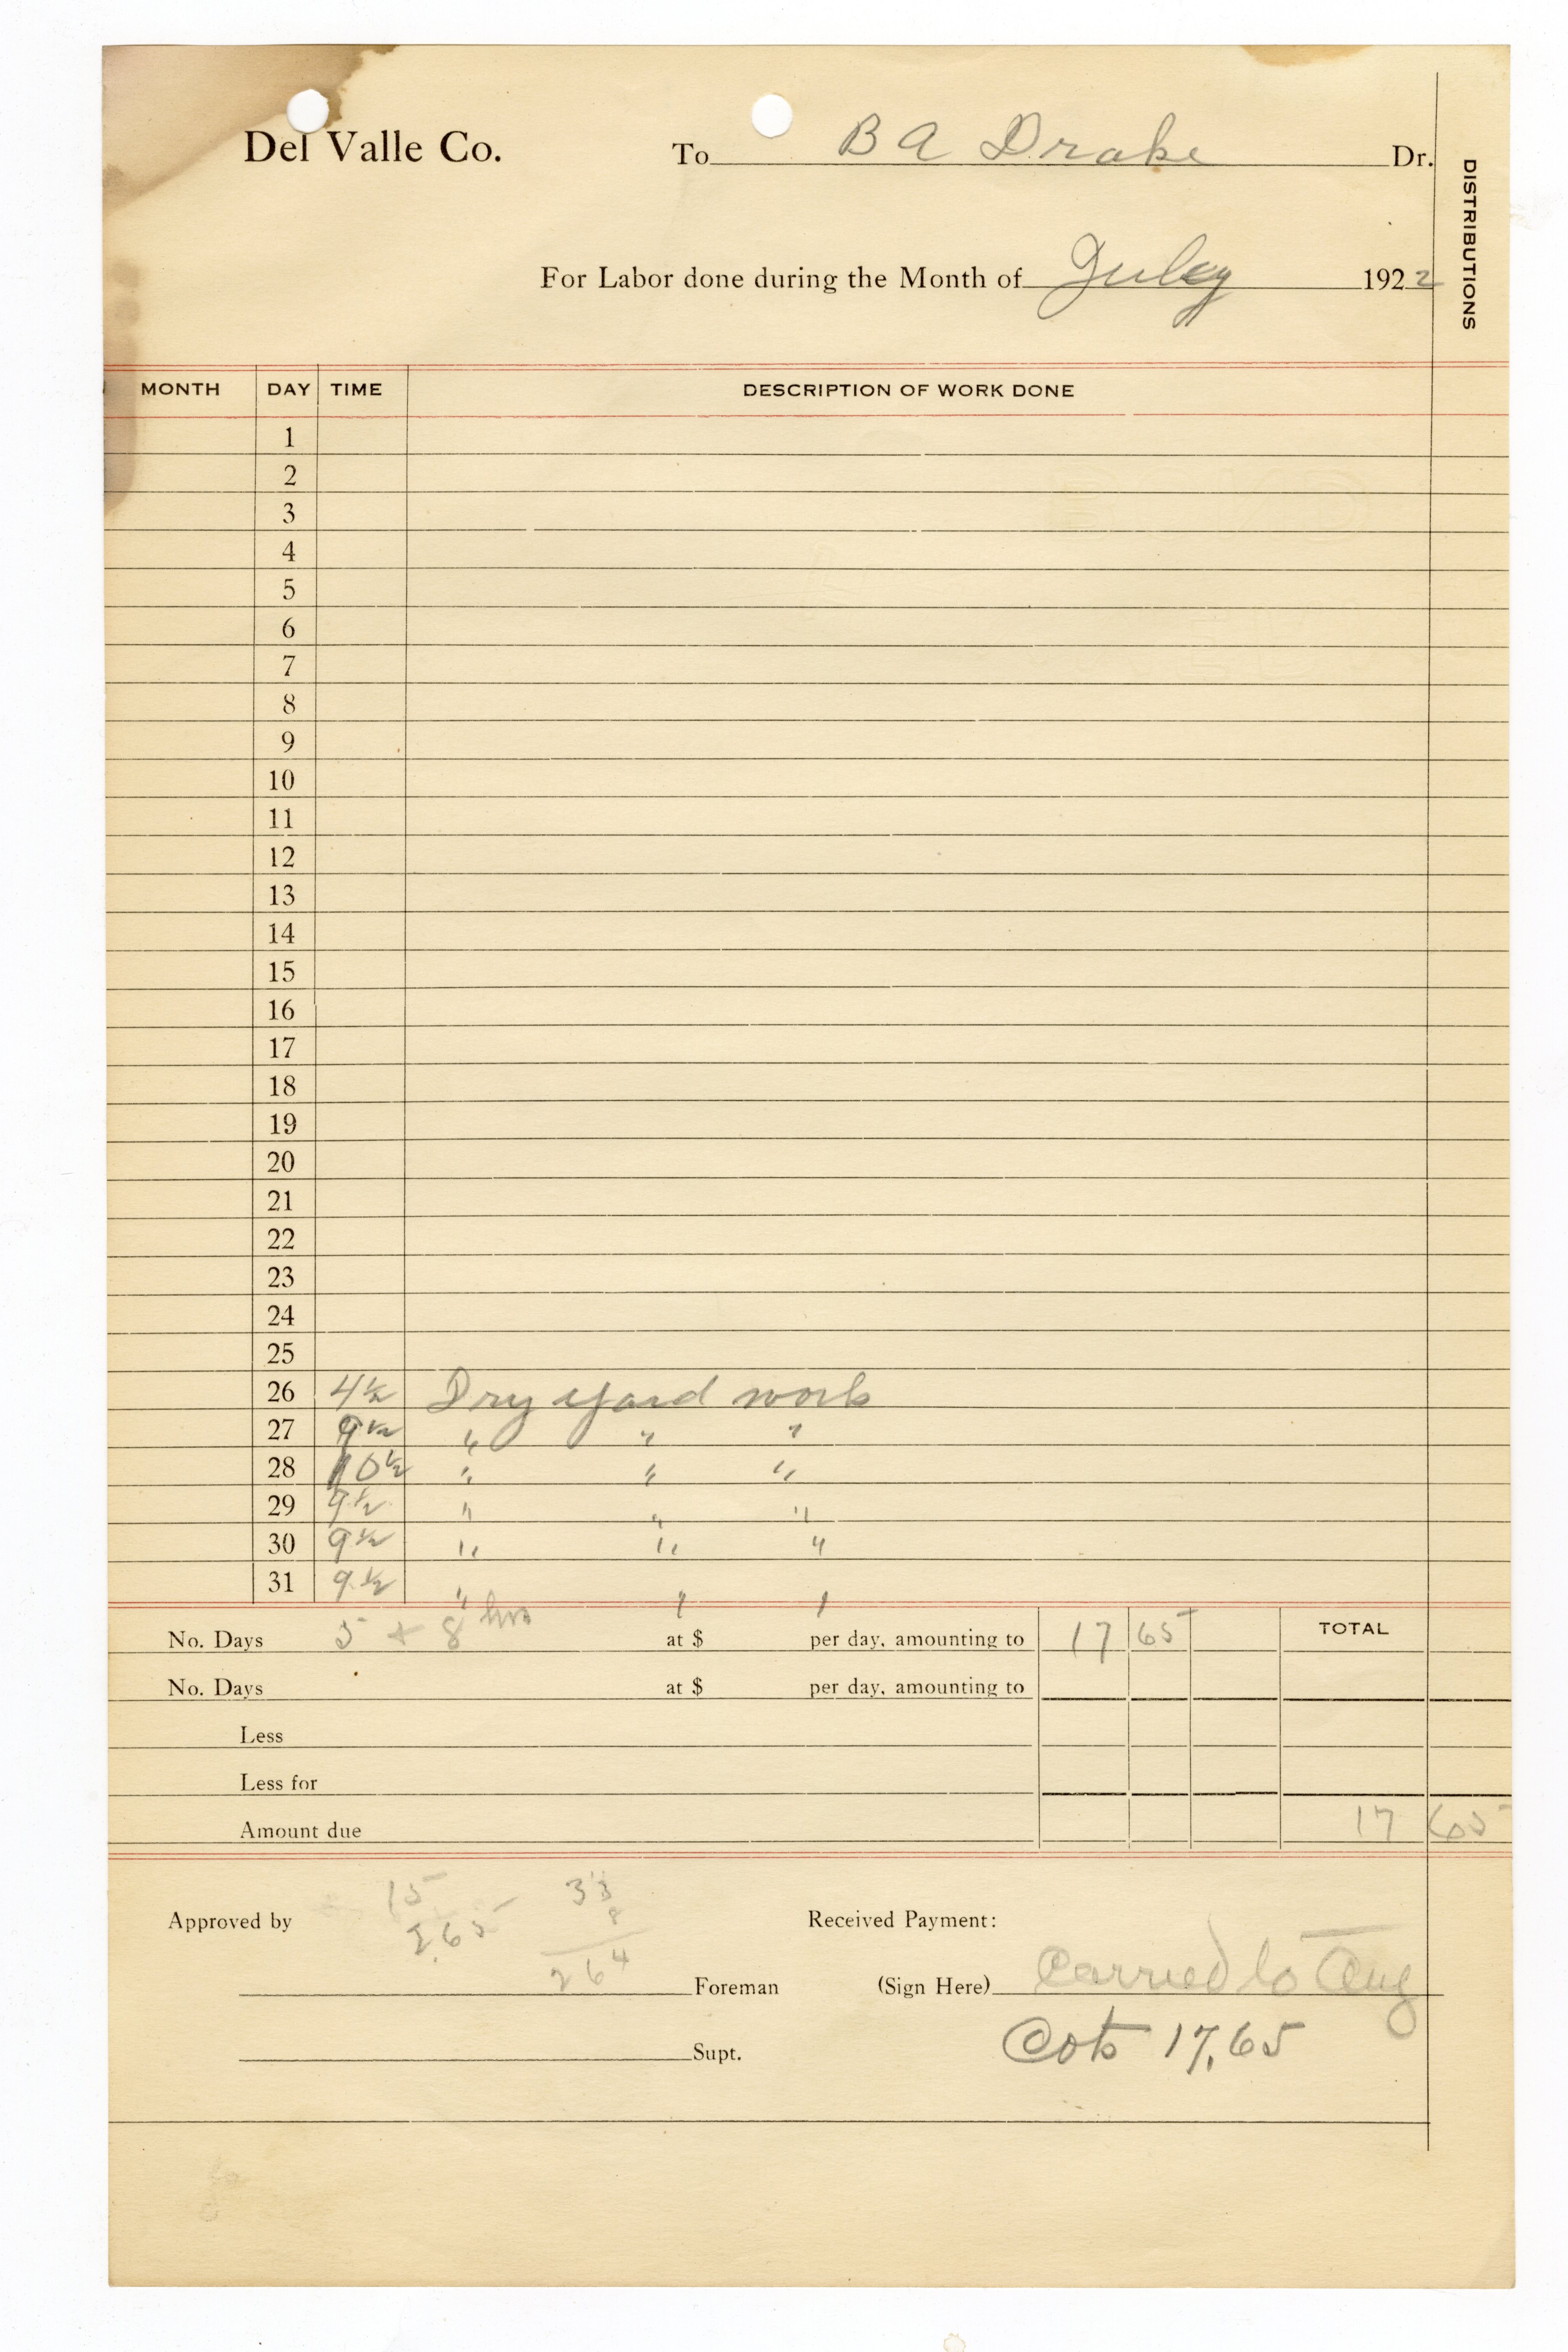 Del Valle Co. To B A Drake Dr.
DISTRIBUTIONS
For Labor done during the Month of July 1922
MONTH DAY TIME DESCRIPTION OF WORK DONE
1
2
3
4
5
6
7
8
9
10
11
12
13
14
15
16
17
18
19
20
21
22
23
24
25
26 4½ Dry yard work
27 9½ " " "
28 10½ " " "
29 9½ " " "
30 9½ " " "
31 9½ " " "
No. Days 5 + 8 hrs at $ per day, amounting to 17 65 TOTAL
No. Days at $ per day, amounting to
Less
Less for
Amount due 17 65
15 33
Approved by 2.65 8 Received Payment:
264 Foreman (Sign Here) Carried to Aug
Supt. Cots 17.65